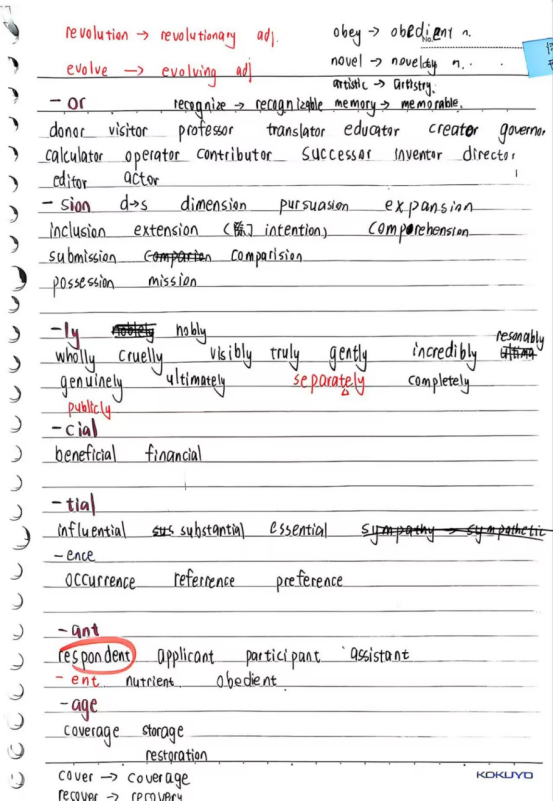 revolution → revolutionary adj.
obey → obedient n.
evolve → evolving adj
novel → novelty n.
artistic → artistry.
-or
recognize → recognizable memory → memorable.
donor visitor professor translator educator creator governor
calculator operator contributor successor inventor director
editor actor
-sion d→s dimension pursuasion expansion
inclusion extension (除] intention) comporehension
submission comparion comparision
possession mission
-ly noblely nobly
resonably
wholly cruelly visibly truly gently incredibly
genuinely ultimately separately completely
publicly
-cial
beneficial financial
-tial
influential sus substantial essential sympathy → sympathetic
-ence
occurrence referrence preference
-ant
respondent applicant participant assistant
-ent nutrient obedient
-age
coverage storage
restoration
cover → coverage
KOKUYO
recover → recovery